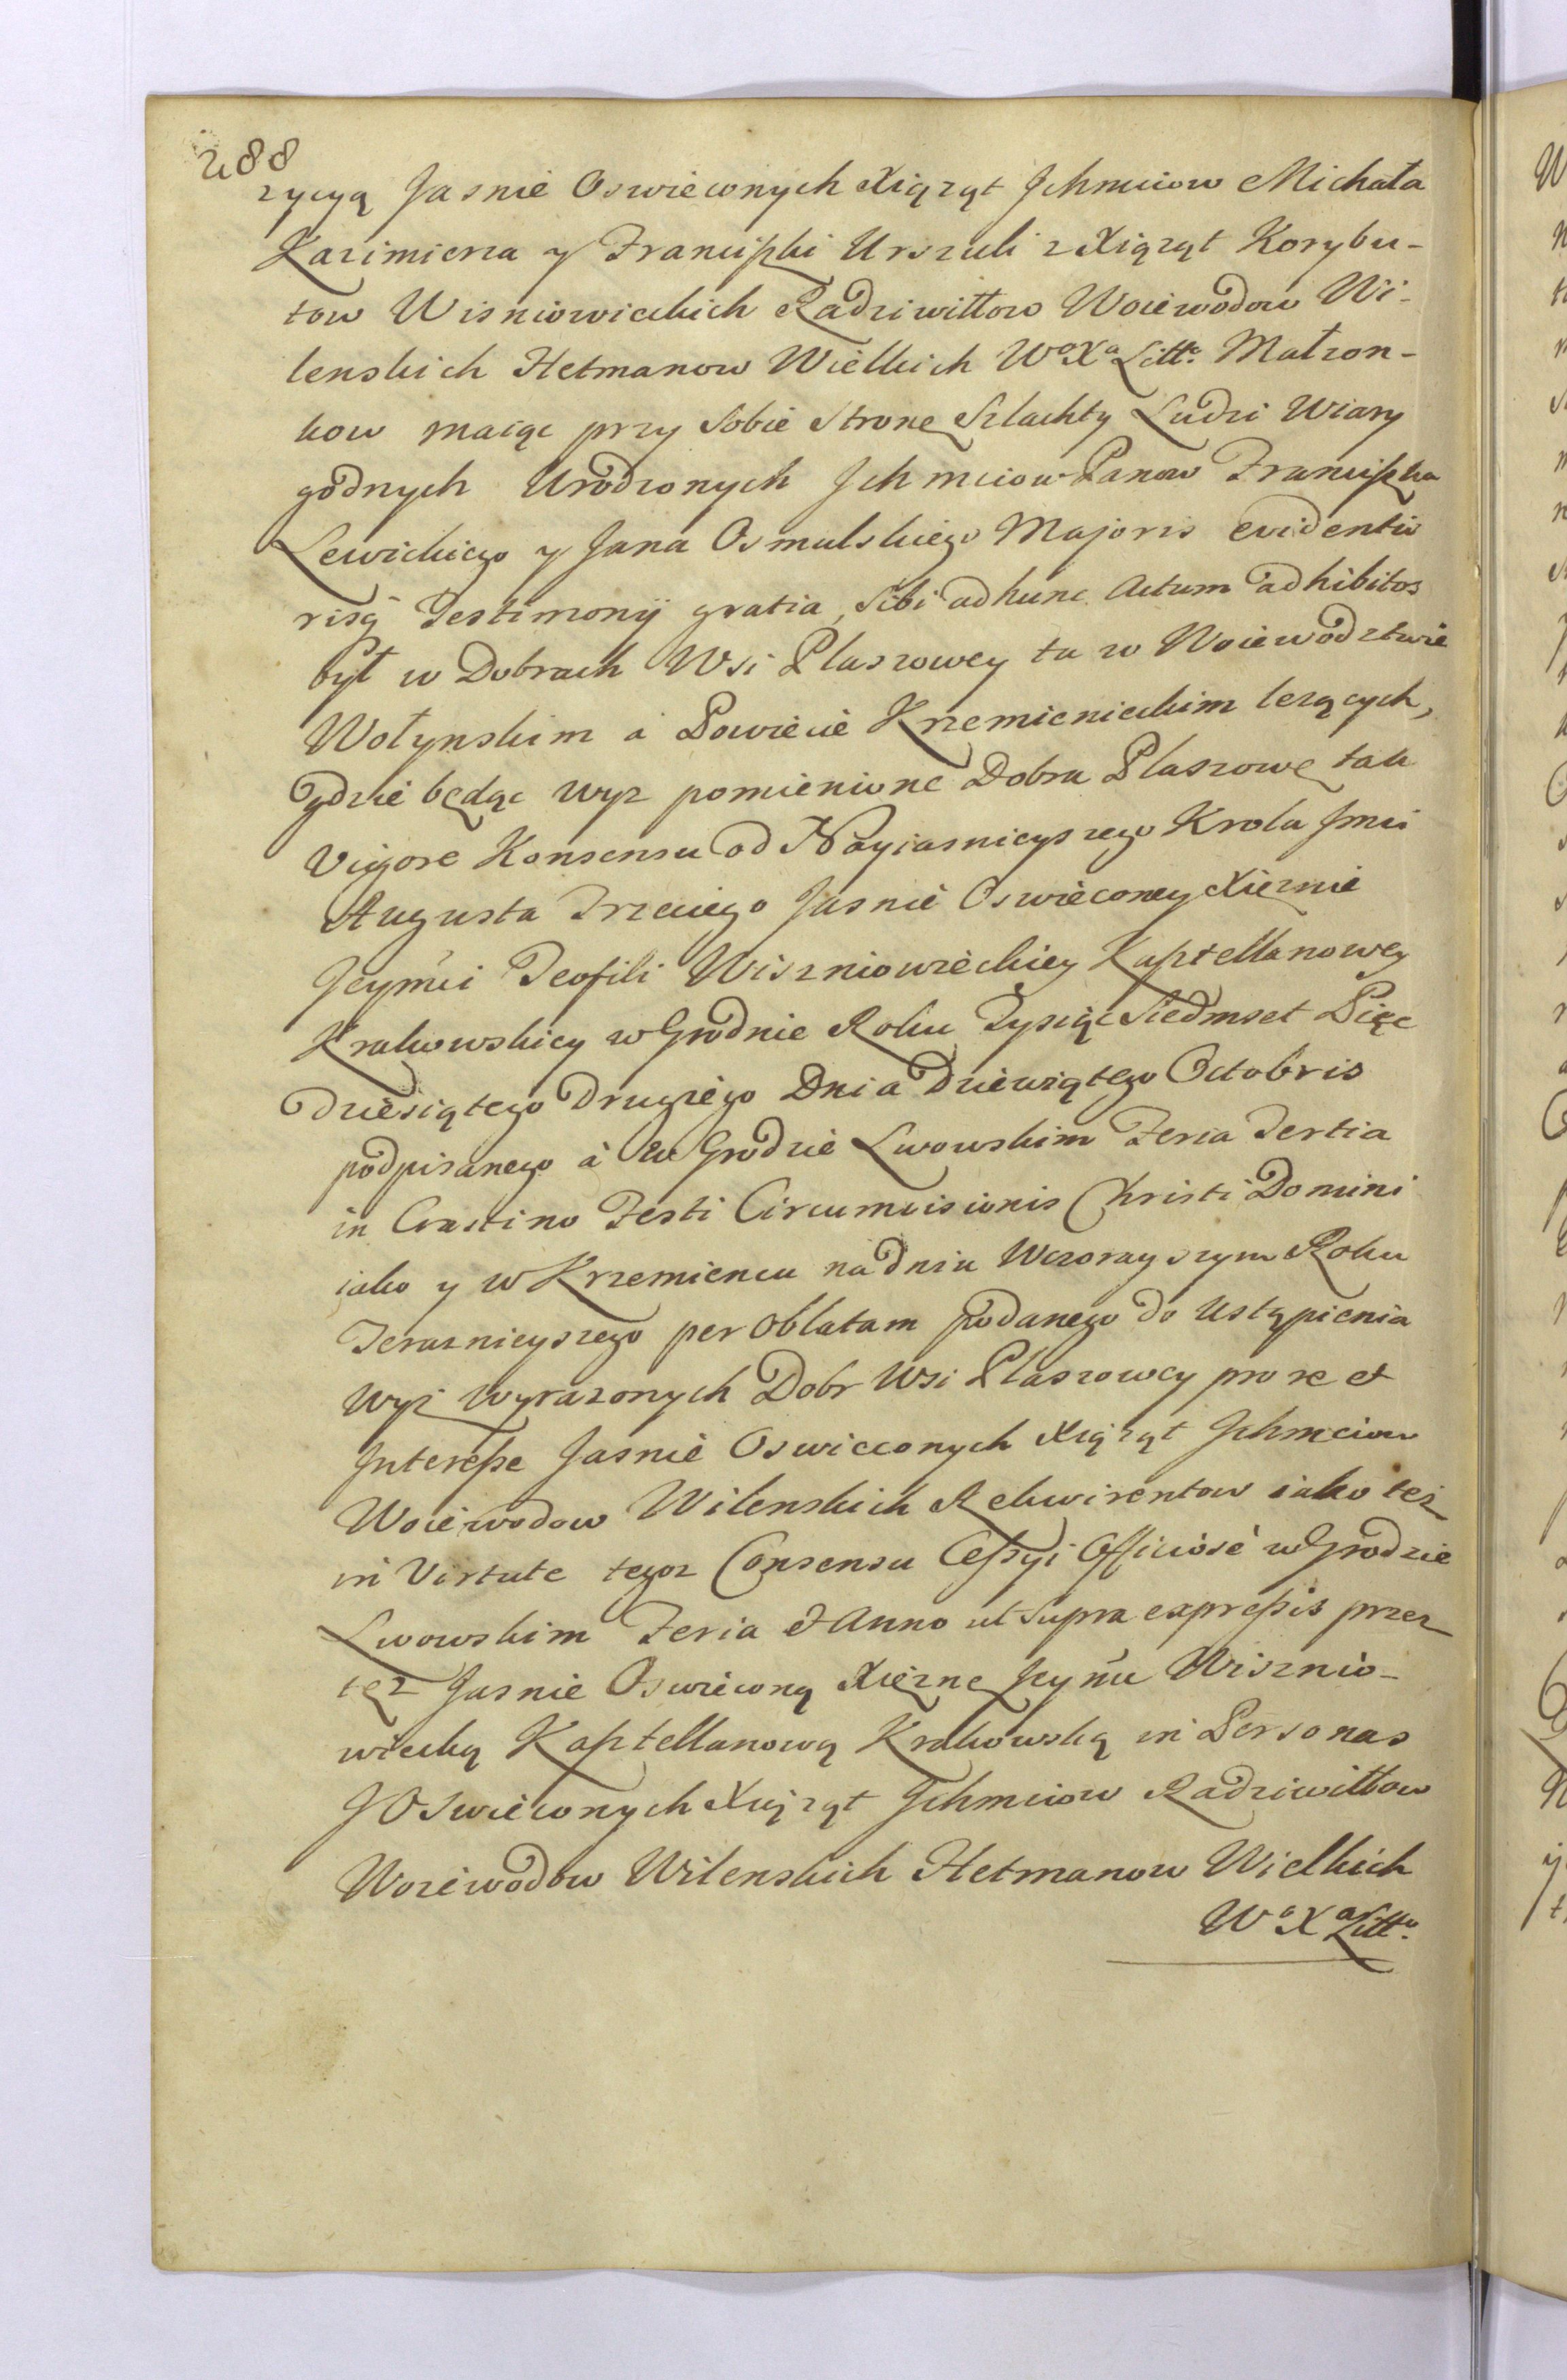 288
zycyą Jasnie Oswieconych Xiąząt Ichmciow Michała
Kazimierza y Franciszki Urszuli z Xiąząt Korybu-
tow Wisniowieckich Radziwiłłow Woiewodow Wi-
lenskich Hetmanow Wielkich Wo Xa Litto Małzon-
kow maiąc przy Sobie Stronę Szlachty Ludzi Wiary
godnych Urodzonych Ichmciow Panow Franciszka
Lewickiego y Jana Osmulskiego Majoris evidentio
risq Testimonij gratia, Sibi ad hunc Actum adhibitos
był w Dobrach Wsi Plaszowey tu w Woiewodztwie
Wołynskim a Powiecie Krzemienieckim lezących,
gdzie będąc wyz pomienione Dobra Plaszowę tak
Vigore Konsensu od Nayiasnieyszego Krola Jmci
Augusta Trzeciego Jasnie Oswieconey Xięznie
Jeymci Teofili Wiszniowieckiey Kasztellanowey
Krakowskiey w Grodnie Roku Tysiąc Siedmset Pięc
dziesiątego Drugiego Dnia Dziewiątego Octobris
podpisanego à w Grodzie Lwowskim Feria Tertia
in Crastino Festi Circumcisionis Christi Domini
iako y w Krzemiencu na dniu Wczorayszym Roku
Teraznieyszego per Oblatam podanego do Ustąpienia
Wyz Wyrazonych Dobr Wsi Plaszowey pro re et
Interesse Jasnie Oswieconych Xiąząt Ichmciow
Woiewodow Wilenskich Rekwirentow iako tez
in Virtute tegoz Consensu Cessyi Officiosè w Grodzie
Lwowskim Feria & Anno ut Supra expressis przez
tęz Jasnie Oswieconą Xięznę Jeymć Wisznio-
wiecką Kasztellanową Krakowską in Personas
JOSwieconych Xiąząt Ichmciow Radziwiłłow
Woiewodow Wilenskich Hetmanow Wielkich
Wo Xa Litto